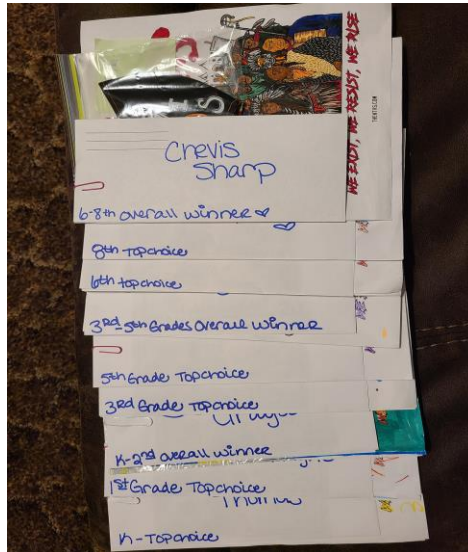 WE EXIST, WE RESIST, WE RISE
Chevis
Sharp
6-8th overall winner
8th Topchoice
6th topchoice
3rd-5th Grades Overall Winner
5th Grade Topchoice
3rd Grade Topchoice
K-2nd overall winner
1st Grade Topchoice
K-Topchoice